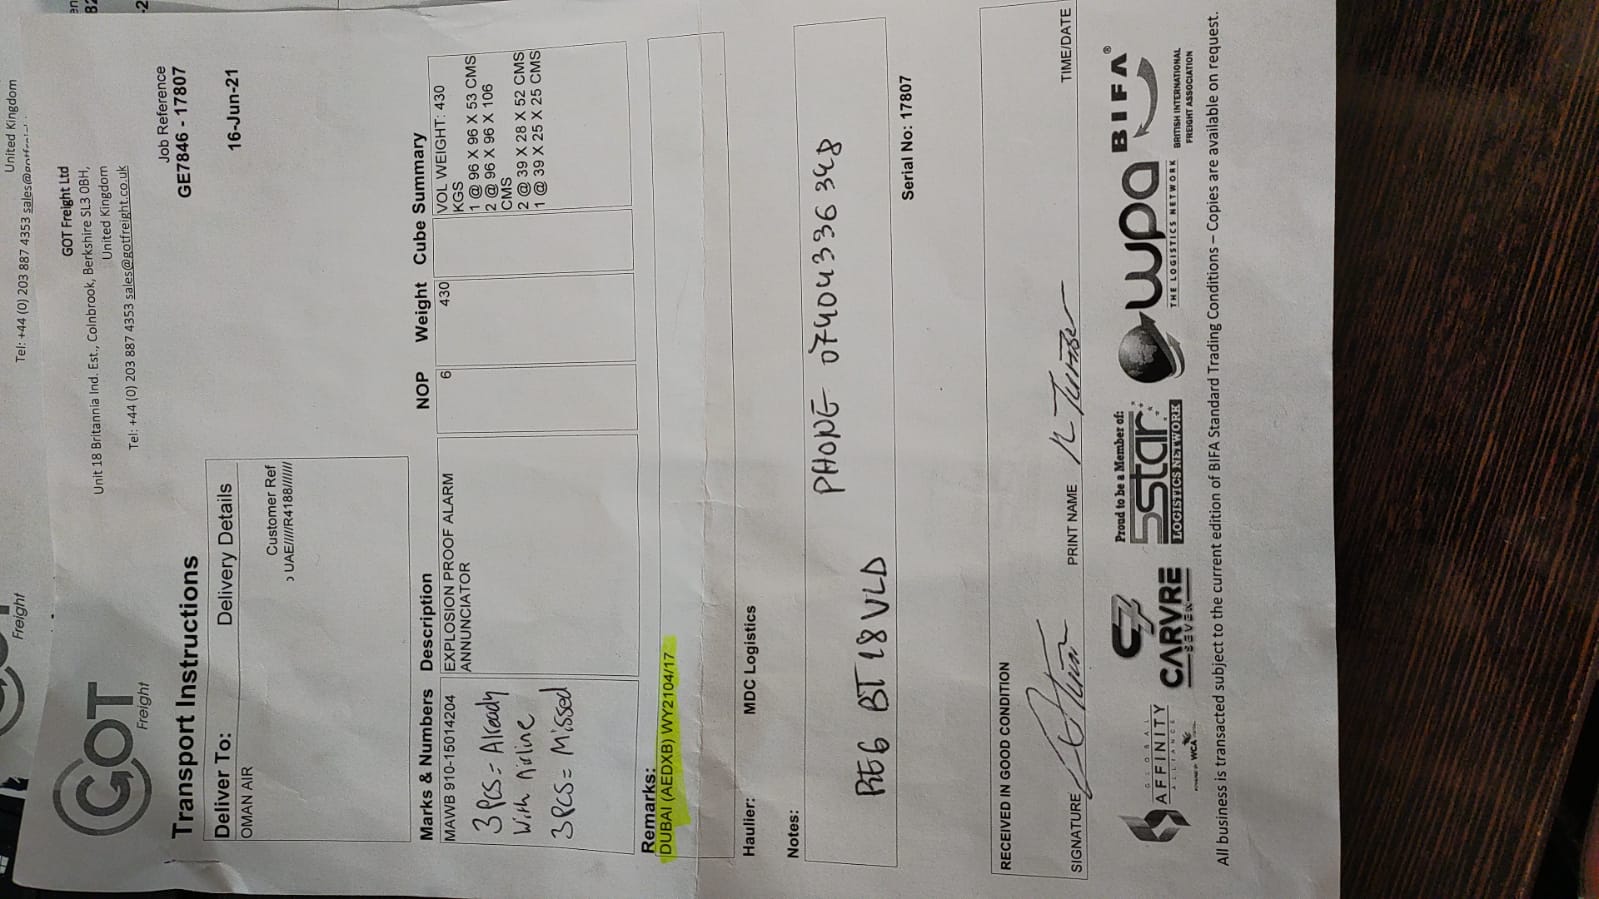 United Kingdom
Tel: +44 (0) 203 887 4353
Freight
GOT
Freight
GOT Freight Ltd
Unit 18 Britannia Ind. Est., Colnbrook, Berkshire SL3 0BH,
United Kingdom
Tel: +44 (0) 203 887 4353 sales@gotfreight.co.uk
Transport Instructions
Job Reference
GE7846 - 17807
Deliver To:
Delivery Details
16-Jun-21
OMAN AIR
Customer Ref
UAE/////R4188///////
Marks & Numbers Description NOP Weight Cube Summary
MAWB 910-15014204
EXPLOSION PROOF ALARM
ANNUNCIATOR
6
430
VOL WEIGHT: 430
KGS
1 @ 96 X 96 X 53 CMS
2 @ 96 X 96 X 106
CMS
2 @ 39 X 28 X 52 CMS
1 @ 39 X 25 X 25 CMS
3 PCS = Already
With Airline
3 PCS = Missed
Remarks:
DUBAI (AEDXB) WY2104/17
Haulier: MDC Logistics
Notes:
REG BT18VLD PHONE 07404336348
Serial No: 17807
RECEIVED IN GOOD CONDITION
SIGNATURE PRINT NAME K Turner TIME/DATE
Proud to be a Member of:
GLOBAL
AFFINITY
ALLIANCE
POWERED BY WCA
C7
CARVRE
SEVEN
5star
LOGISTICS NETWORK
wpa
THE LOGISTICS NETWORK
BIFA®
BRITISH INTERNATIONAL
FREIGHT ASSOCIATION
All business is transacted subject to the current edition of BIFA Standard Trading Conditions – Copies are available on request.